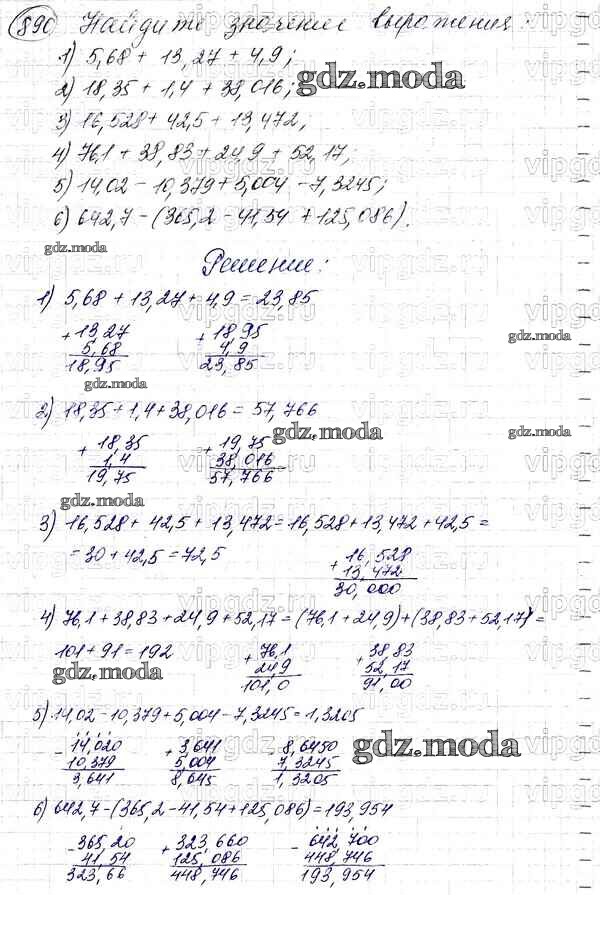 890 Найдите значение выражения:
1) 5,68 + 13,27 + 4,9;
2) 18,35 + 1,4 + 38,016;
gdz.moda
3) 16,528 + 42,5 + 13,472;
4) 76,1 + 38,83 + 24,9 + 52,17;
5) 14,02 - 10,379 + 5,004 - 7,3245;
6) 642,7 - (365,2 - 41,54 + 125,086).
gdz.moda
Решение:
1) 5,68 + 13,27 + 4,9 = 23,85
+ 13,27 + 18,95
5,68 4,9
18,95 23,85
gdz.moda
gdz.moda
2) 18,35 + 1,4 + 38,016 = 57,766
gdz.moda
gdz.moda
+ 18,35 + 19,75
1,4 38,016
19,75 57,766
gdz.moda
3) 16,528 + 42,5 + 13,472 = 16,528 + 13,472 + 42,5 =
= 30 + 42,5 = 72,5
+ 16,528
13,472
30,000
4) 76,1 + 38,83 + 24,9 + 52,17 = (76,1 + 24,9) + (38,83 + 52,17) =
101 + 91 = 192
+ 76,1 + 38,83
24,9 52,17
101,0 91,00
gdz.moda
5) 14,02 - 10,379 + 5,004 - 7,3245 = 1,3205
- 14,020 + 3,641 - 8,6450
10,379 5,004 7,3245
3,641 8,645 1,3205
gdz.moda
6) 642,7 - (365,2 - 41,54 + 125,086) = 193,954
- 365,20 + 323,660 - 642,700
41,54 125,086 448,746
323,66 448,746 193,954